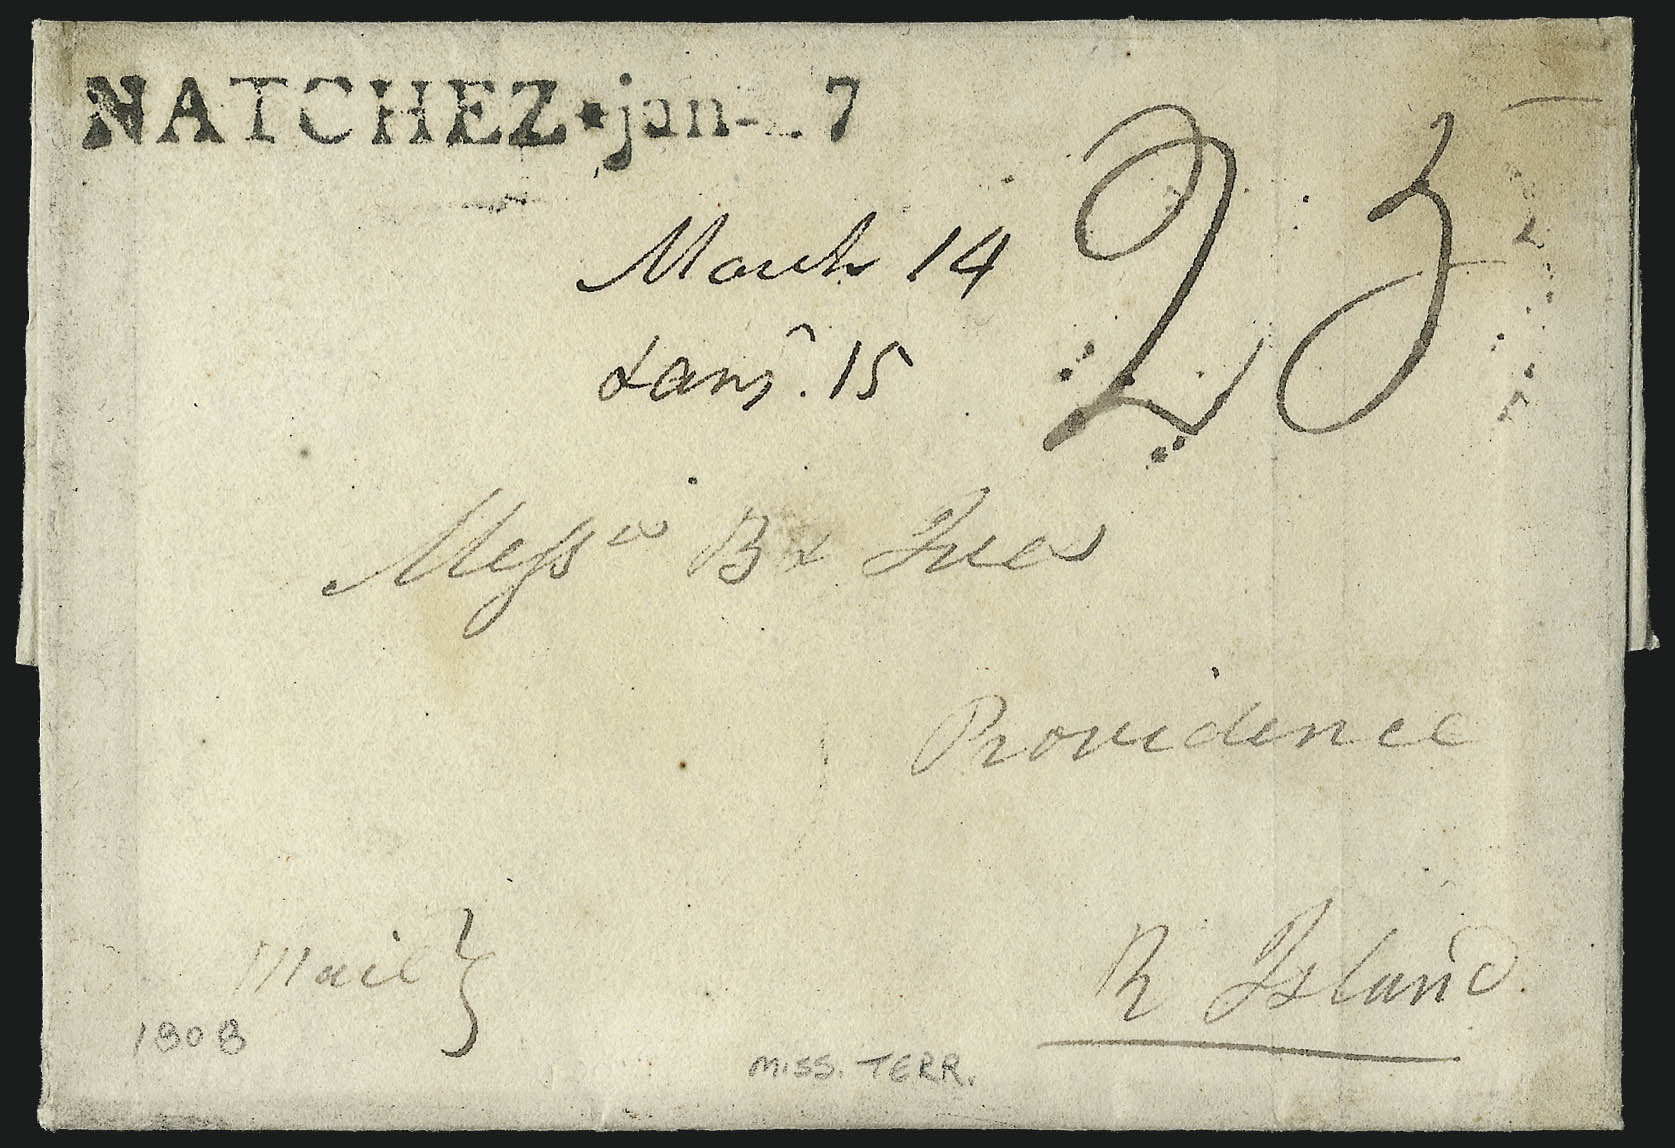 NATCHEZ ★ jan- 7
25
March 14
& ansʳ. 15
Messʳˢ B & Ives
Providence
R Island.
Mail }
1808
MISS. TERR.